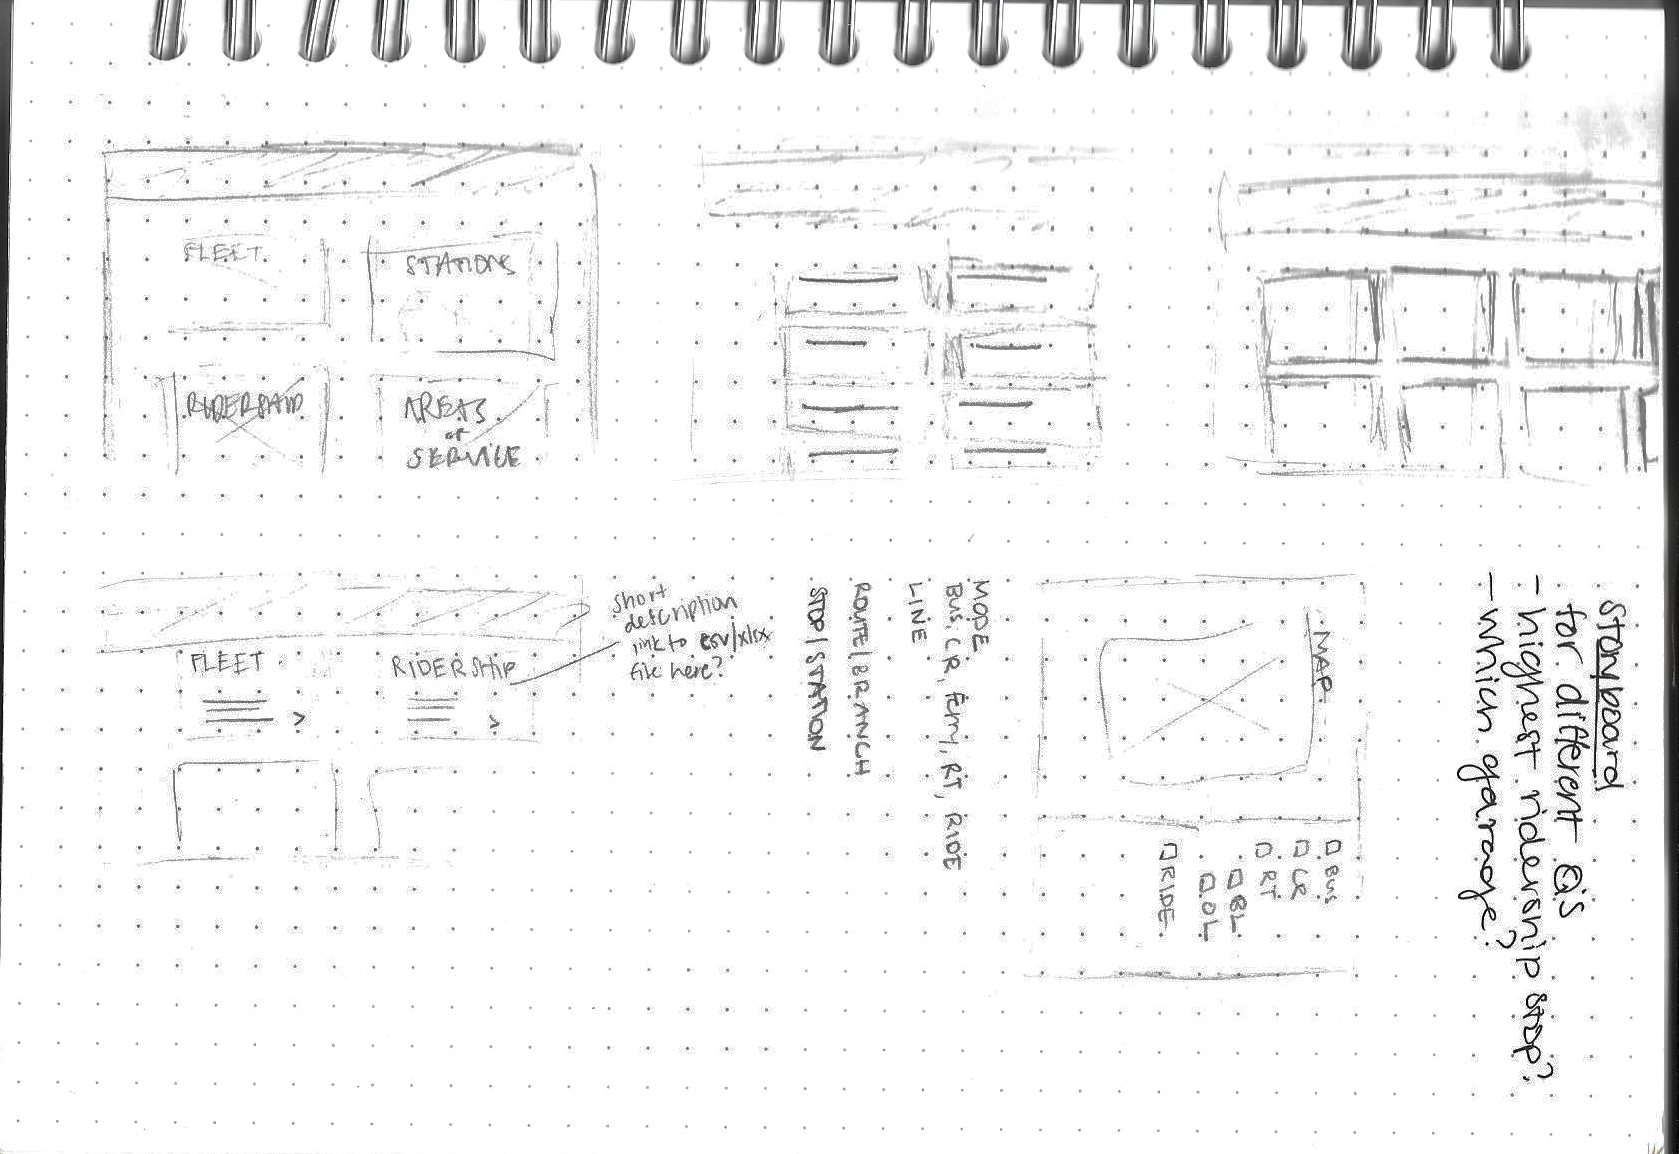 FLEET
STATIONS
RIDERSHIP
AREAS
OF
SERVICE
FLEET
RIDERSHIP
short
description
link to csv/xlsx
file here?
MODE
BUS, CR, Ferry, RT, RIDE
LINE
ROUTE/BRANCH
STOP/STATION
MAP
BUS
CR
RT
BL
OL
RIDE
Storyboard
for different Qs
- highest ridership stop?
- Which garage?